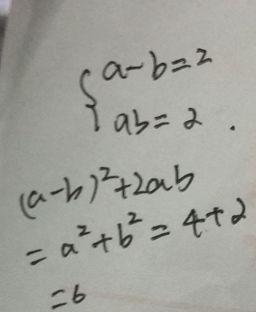 {a-b=2
ab=2.
(a-b)²+2ab
=a²+b²=4+2
=6